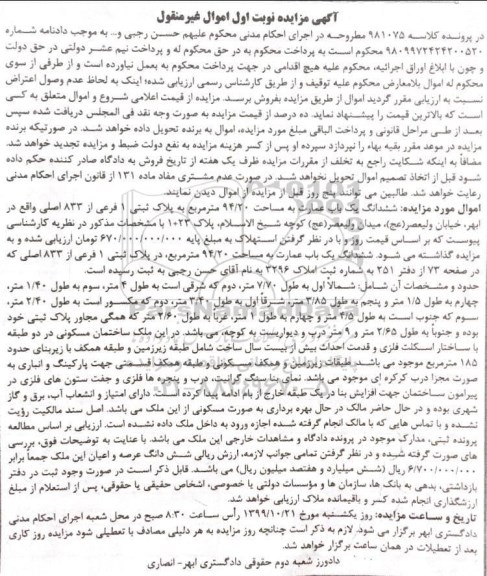 آگهی مزایده نوبت اول اموال غیرمنقول
در پرونده کلاسه 981075 مطروحه در اجرای احکام مدنی محکوم علیهم حسن رجبی و... به موجب دادنامه شماره
9809972424200530 محکوم است به پرداخت محکوم به در حق محکوم له و پرداخت نیم عشر دولتی در حق دولت
و چون با ابلاغ اوراق اجرائیه، محکوم علیه هیچ اقدامی در جهت پرداخت محکوم به بعمل نیاورده است و از طرفی از سوی
محکوم له اموال بلامعارض محکوم علیه توقیف و از طریق کارشناس رسمی ارزیابی شده؛ اینک به لحاظ عدم وصول اعتراض
نسبت به ارزیابی مقرر گردید اموال از طریق مزایده بفروش برسد. مزایده از قیمت اعلامی شروع و اموال متعلق به کسی
است که بالاترین قیمت را پیشنهاد نماید. ده درصد از قیمت مزایده به صورت وجه نقد فی المجلس دریافت شده سپس
بعد از طی مراحل قانونی و پرداخت الباقی مبلغ مورد مزایده، اموال به برنده تحویل داده خواهد شد. در صورتیکه برنده
مزایده در موعد مقرر بقیه بهاء را نپردازد سپرده او پس از کسر هزینه مزایده به نفع دولت ضبط و مزایده تجدید خواهد شد.
مضافاً به اینکه شکایت راجع به تخلف از مقررات مزایده ظرف یک هفته از تاریخ فروش به دادگاه صادر کننده حکم داده
شود قبل از اتخاذ تصمیم اموال تحویل نخواهد شد. در صورت عدم مشتری مفاد ماده 131 از قانون اجرای احکام مدنی
رعایت خواهد شد. طالبین می توانند پنج روز قبل از مزایده از اموال دیدن نمایند.
اموال مورد مزایده: ششدانگ یک باب عمارت به مساحت 94/20 مترمربع به پلاک ثبتی 1 فرعی از 833 اصلی واقع در
ابهر، خیابان ولیعصر(عج)، میدان ولیعصر(عج) کوچه شیخ الاسلام، پلاک 1023 با مشخصات مذکور در نظریه کارشناسی
پیوست که بر اساس قیمت روز و با در نظر گرفتن استهلاک به مبلغ پایه 670/000/000 تومان ارزیابی شده و به
مزایده گذاشته می شود. ششدانگ یک باب عمارت به مساحت 94/20 مترمربع، در پلاک ثبتی 1 فرعی از 833 اصلی که
در صفحه 73 از دفتر 251 به شماره ثبت املاک 3296 به نام آقای حسن رجبی به ثبت رسیده است.
حدود و مشخصات آن شامل: شمالاً اول به طول 7/70 متر، دوم که شرقی است به طول 4 متر، سوم به طول 1/40 متر،
چهارم به طول 1/5 متر و پنجم به طول 3/85 متر، شرقاً اول به طول 3/20 متر، دوم که مکسور است به طول 2/40 متر،
سوم که جنوب است به طول 4/5 متر و چهارم به طول متر، غرباً به طول 2/60 متر که همگی مجاور پلاک ثبتی خود
بوده و جنوباً به طول 2/65 متر و 9 متر درب و دیواریست به کوچه، می باشد. در این ملک ساختمان مسکونی در دو طبقه
با ساختار اسکلت فلزی و قدمت احداث بیش از بیست سال ساخت شامل طبقه زیرزمین و طبقه همکف با زیربنای حدود
185 مترمربع موجود می باشد. طبقات زیرزمین و همکف مسکونی و طبقه همکف قسمتی جهت پارکینگ و انباری به
صورت مجزا درب کرکره ای موجود می باشد. نمای بنا سنگ گرانیت، درب و پنجره ها فلزی و جفت ستون های فلزی در
پیرامون ساختمان جهت افزایش بنا در یک طبقه خارج از بام ادامه پیدا کرده است. دارای امتیاز و انشعاب آب، برق و گاز
شهری بوده و در حال حاضر مالک در حال بهره برداری به صورت مسکونی از این ملک می باشد. اصل سند مالکیت رؤیت
نشده و با تماس هایی که با مالک انجام گرفته شده اجازه ورود به داخل ملک داده نشده است. ارزیابی بر اساس مطالعه
پرونده ثبتی، مدارک موجود در پرونده دادگاه و مشاهدات خارجی این ملک می باشد. با عنایت به توضیحات فوق، بررسی
های صورت گرفته شیده و در نظر گرفتن تمامی جوانب لازمه، ارزش ریالی شش دانگ عرصه و اعیان این ملک جمعاً برابر
6/700/000/000 ریال (شش میلیارد و هفتصد میلیون ریال) می باشد. قابل ذکر است در صورت وجود ثبت در دفتر
بازداشتی، بدهی به بانک ها، سازمان ها و مؤسسات دولتی یا خصوصی، اشخاص حقیقی یا حقوقی، پس از استعلام از مبلغ
ارزشگذاری انجام شده کسر و باقیمانده ملاک ارزیابی خواهد شد.
تاریخ و ساعت مزایده: روز یکشنبه مورخ 1399/10/21 رأس ساعت 8:30 صبح در محل شعبه اجرای احکام مدنی
دادگستری ابهر برگزار می شود. لازم به ذکر است چنانچه روز مزایده به هر دلیلی مصادف با تعطیلی شود مزایده روز کاری
بعد از تعطیلات در همان ساعت برگزار خواهد شد.
دادورز شعبه دوم حقوقی دادگستری ابهر- انصاری